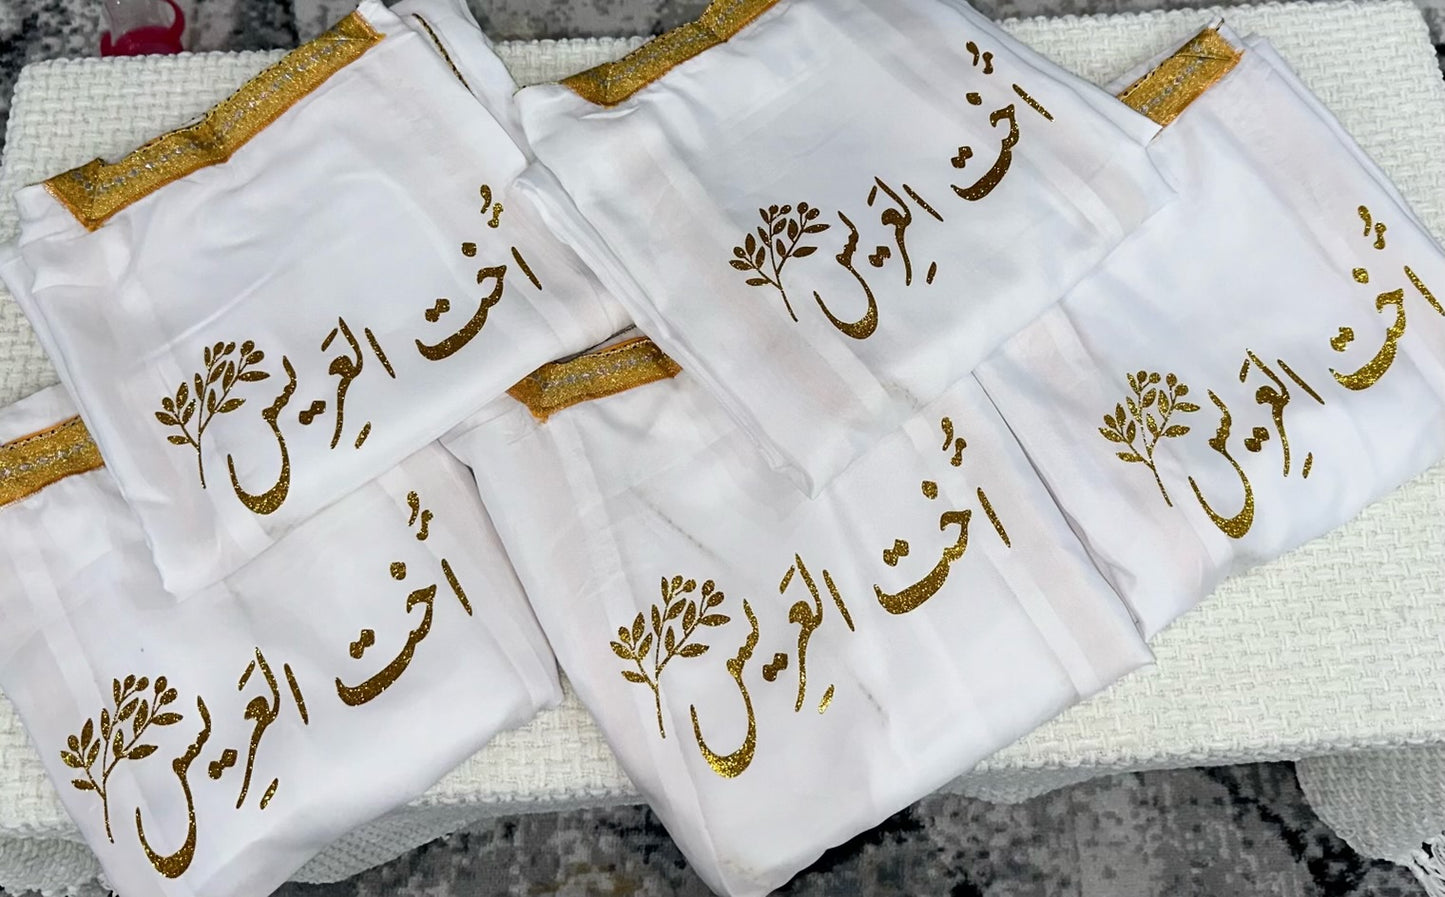 أُخت العَرِيس
أُخت العَرِيس
أُخت العَرِيس
أُخت العَرِيس
أُخت العَرِيس